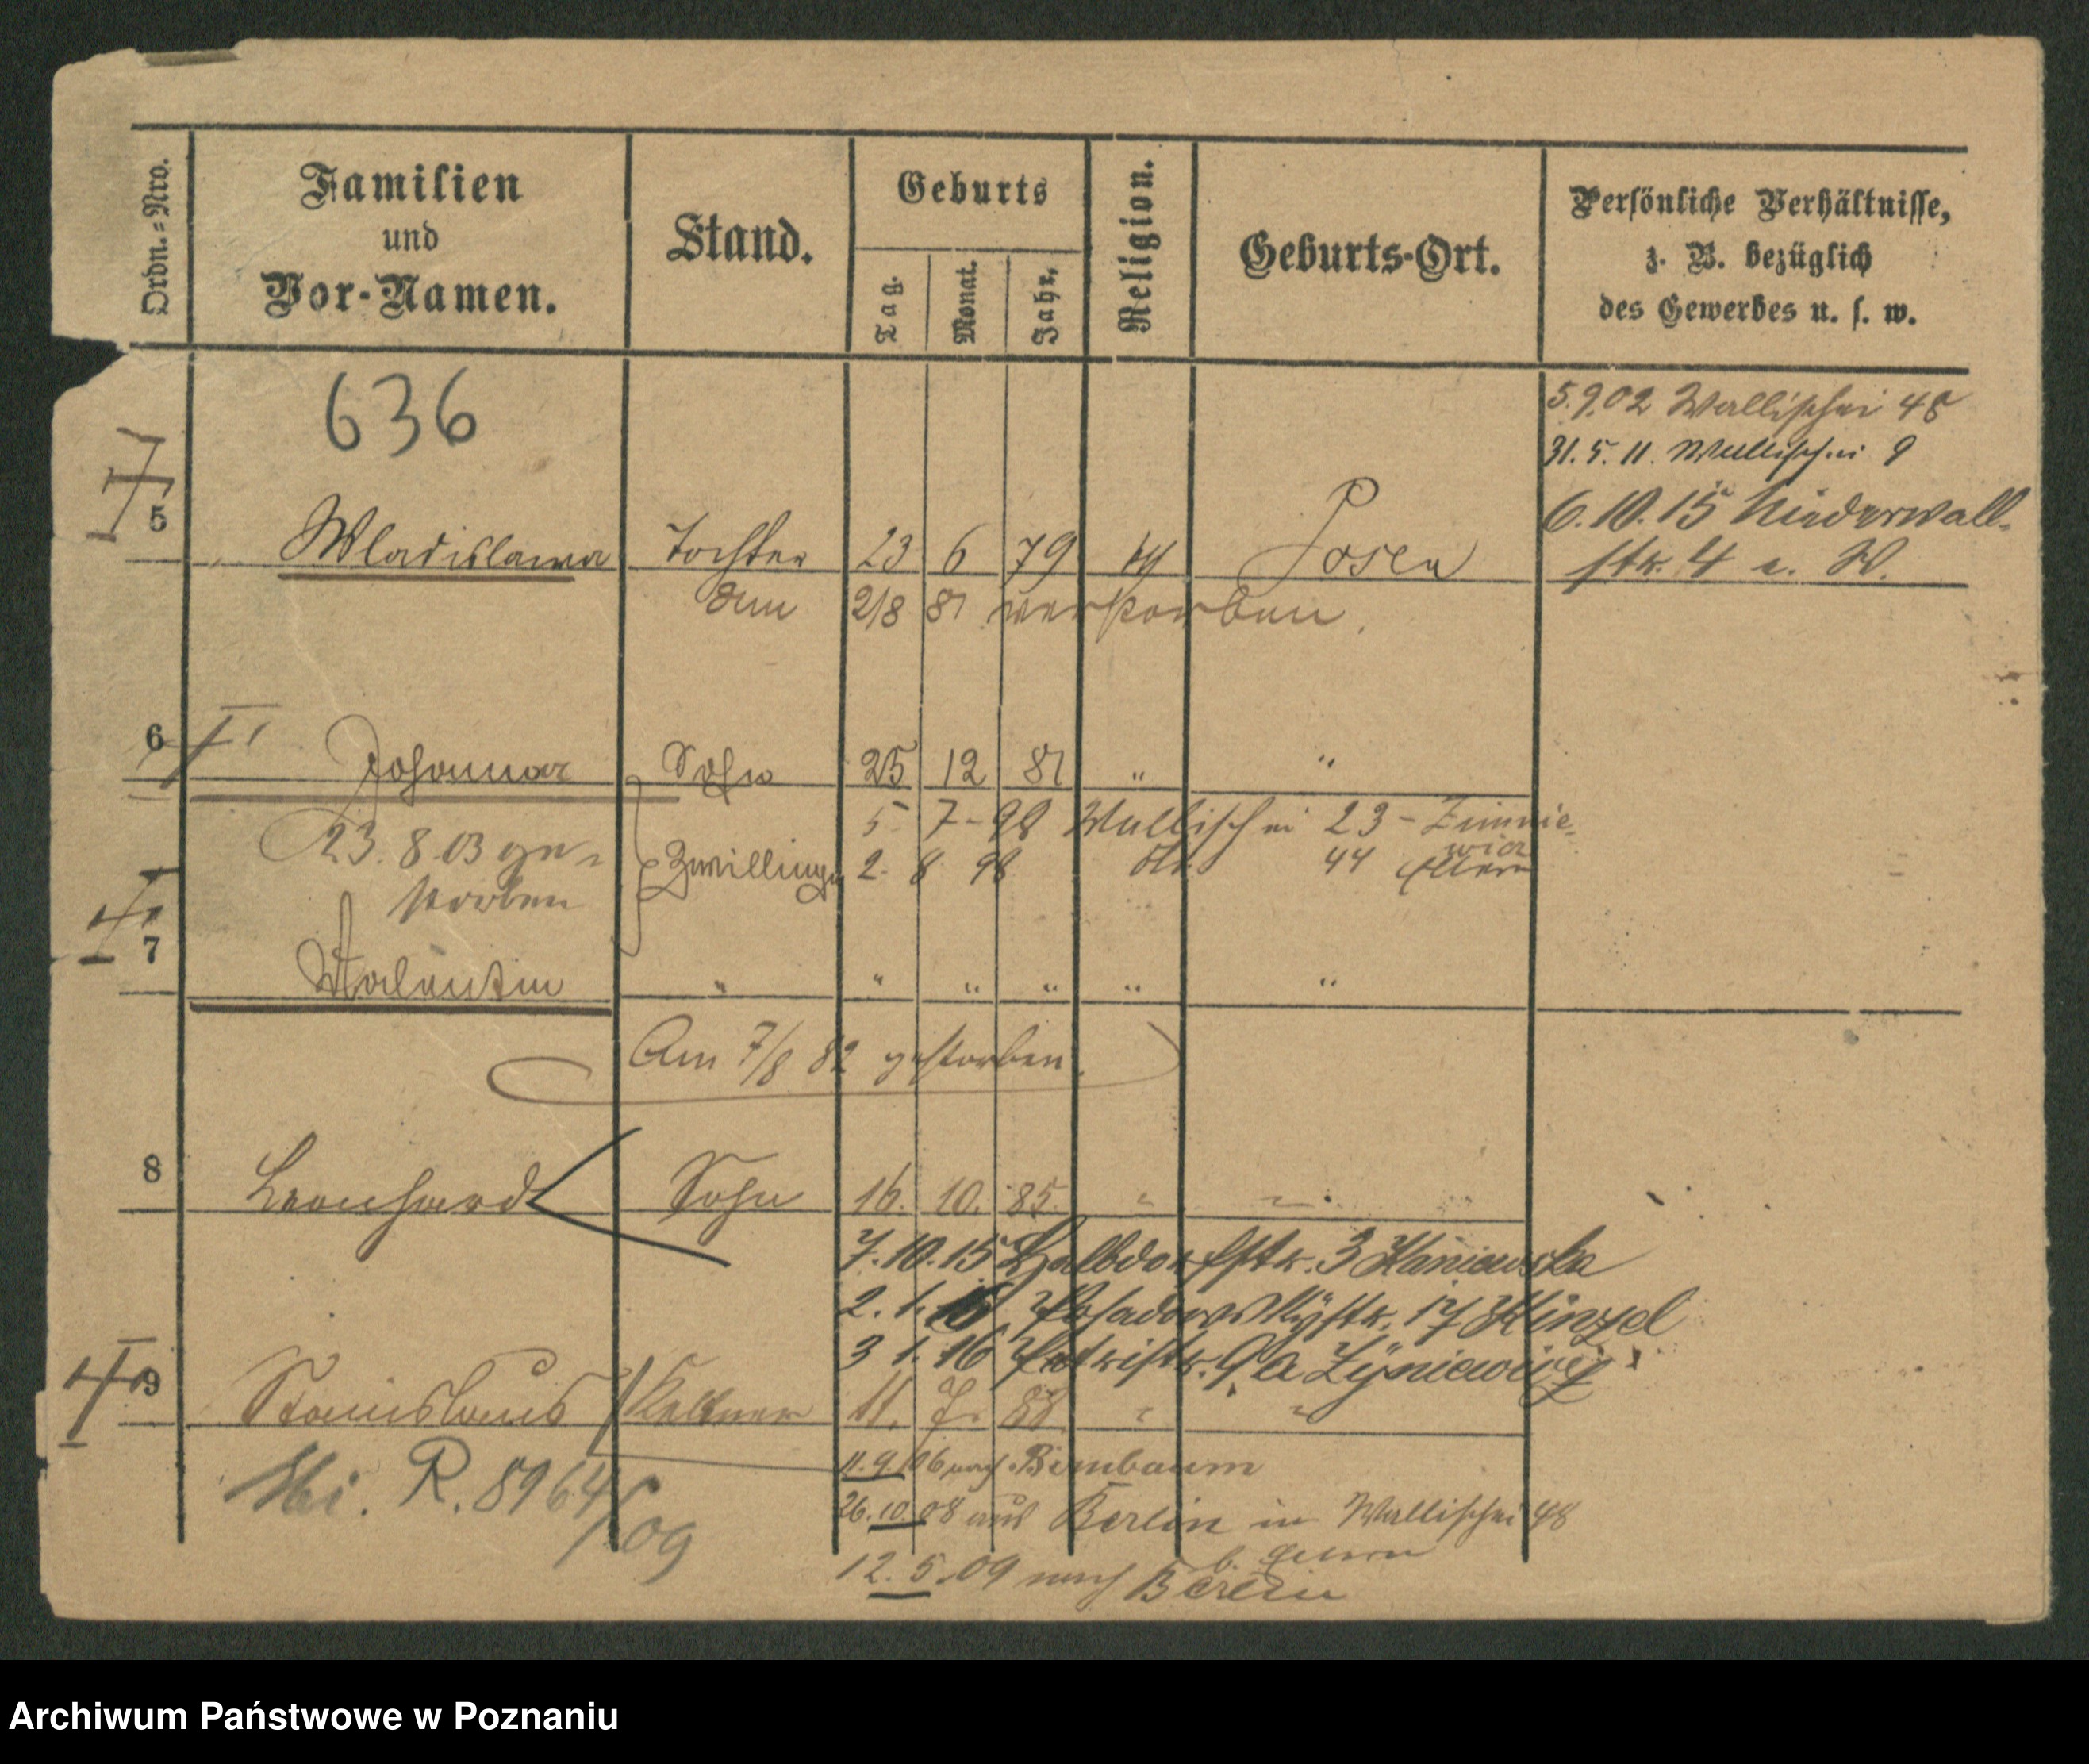 Ordn.=Nro.
Familien
und
Vor-Namen.
Stand.
Geburts
Tag.
Monat.
Jahr.
Religion.
Geburts-Ort.
Persönliche Verhältnisse,
z. B. bezüglich
des Gewerbes u. s. w.
636
5.9.02 Wallischei 48
31.5.11. Wallischei 9
6.10.15 Niederwall-
str. 4 a. W.
5 Wladislawa Tochter 23 6 79 k Posen
Am 2/8 81 verstorben.
6 Johannar Sohn 25 12 81 " "
5 7-98 Wallischei 23 - Zimnie-
wicz
23. 8 03 ge-
storben
Zwillinge 2. 8 98 dto 44 Eltern
7 Valentin " " " " " "
Am 7/8 82 gestorben.
8 Leonhard Sohn 16. 10. 85. " "
7.10.15 Halbdorfstr. 3 Kaniewska
2. 1. 16 Posadowskystr. 17 Kinzel
3 1. 16 Patristr. 9a Zyniewicz
9 Stanislaus Kellner 11. 7. 88 " "
11.9.06 nach Birnbaum
R. 8964/09
26.10.08 aus Berlin in Wallischei 48
b. Eltern
12.5.09 nach Berlin
Archiwum Państwowe w Poznaniu